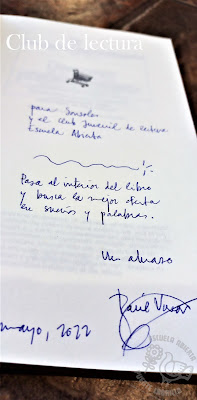 Club de lectura
para Consoles
y el Club Juvenil de lectura
Escuela Abierta
Pasa al interior del libro
y busca la mejor oferta
en sueños y palabras.
Un abrazo
Raúl Vacas
mayo, 2022
ESCUELA ABIERTA